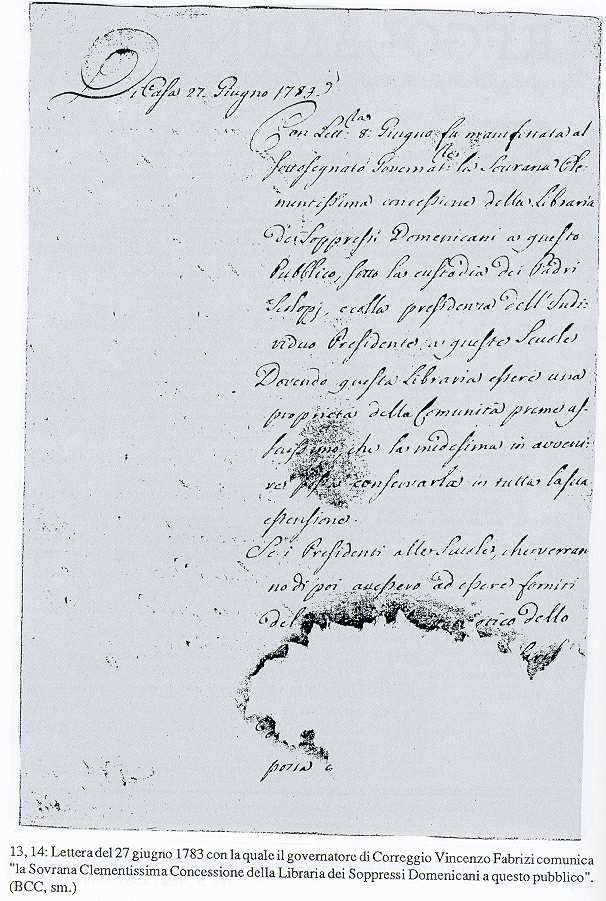 Di Casa 27 Giugno 1783
Con Lett.ra 8: Giugno fu manifestata al
sottosegnato Governat.re la Sovrana Cle-
mentissima concessione della Libraria
de Soppressi Domenicani a questo
Pubblico, sotto la custodia dei Padri
Scolopj, e colla presidenza dell'Indi-
viduo Presidente a queste Scuole
Dovendo questa Libraria essere una
proprietà della Comunità preme as-
saissimo che la medesima in avveni-
re possa conservarla in tutta la sua
estensione.
Se i Presidenti alle Scuole, che verran-
no di poi avessero ad essere forniti
del dello
porta
13, 14: Lettera del 27 giugno 1783 con la quale il governatore di Correggio Vincenzo Fabrizi comunica
"la Sovrana Clementissima Concessione della Libraria dei Soppressi Domenicani a questo pubblico".
(BCC, sm.)